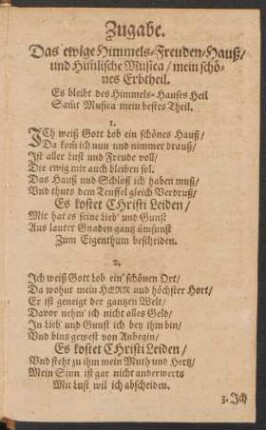 Zugabe.
Das ewige Himmels-Freuden-Hauß/
und Him̃lische Musica / mein schö-
nes Erbtheil.
Es bleibt des Himmels-Hauses Heil
Sam̃t Musica mein bestes Theil.
1.
ICh weiß Gott Lob ein schönes Hauß/
Da kom̃ ich nun und nimmer drauß/
Ist aller Lust und Freude voll/
Die ewig mir auch bleiben sol.
Das Hauß und Schloß ich haben muß/
Und thuts dem Teuffel gleich Verdruß/
Es kostet CHristi Leiden/
Mir hat es seine Lieb' und Gunst
Aus lauter Gnaden gantz ümsunst
Zum Eigenthum bescheiden.
2.
Ich weiß Gott Lob ein' schönen Ort/
Da wohnt mein HERR und höchster Hort/
Er ist geneigt der gantzen Welt/
Davor nehm' ich nicht alles Geld/
In Lieb' und Gunst ich bey ihm bin/
Und bins gewest von Anbegin/
Es kostet CHristi Leiden/
Und steht zu ihm mein Muth und Hertz/
Mein Sinn ist gar nicht anderwerts
Mit Lust wil ich abscheiden.
3. Ich